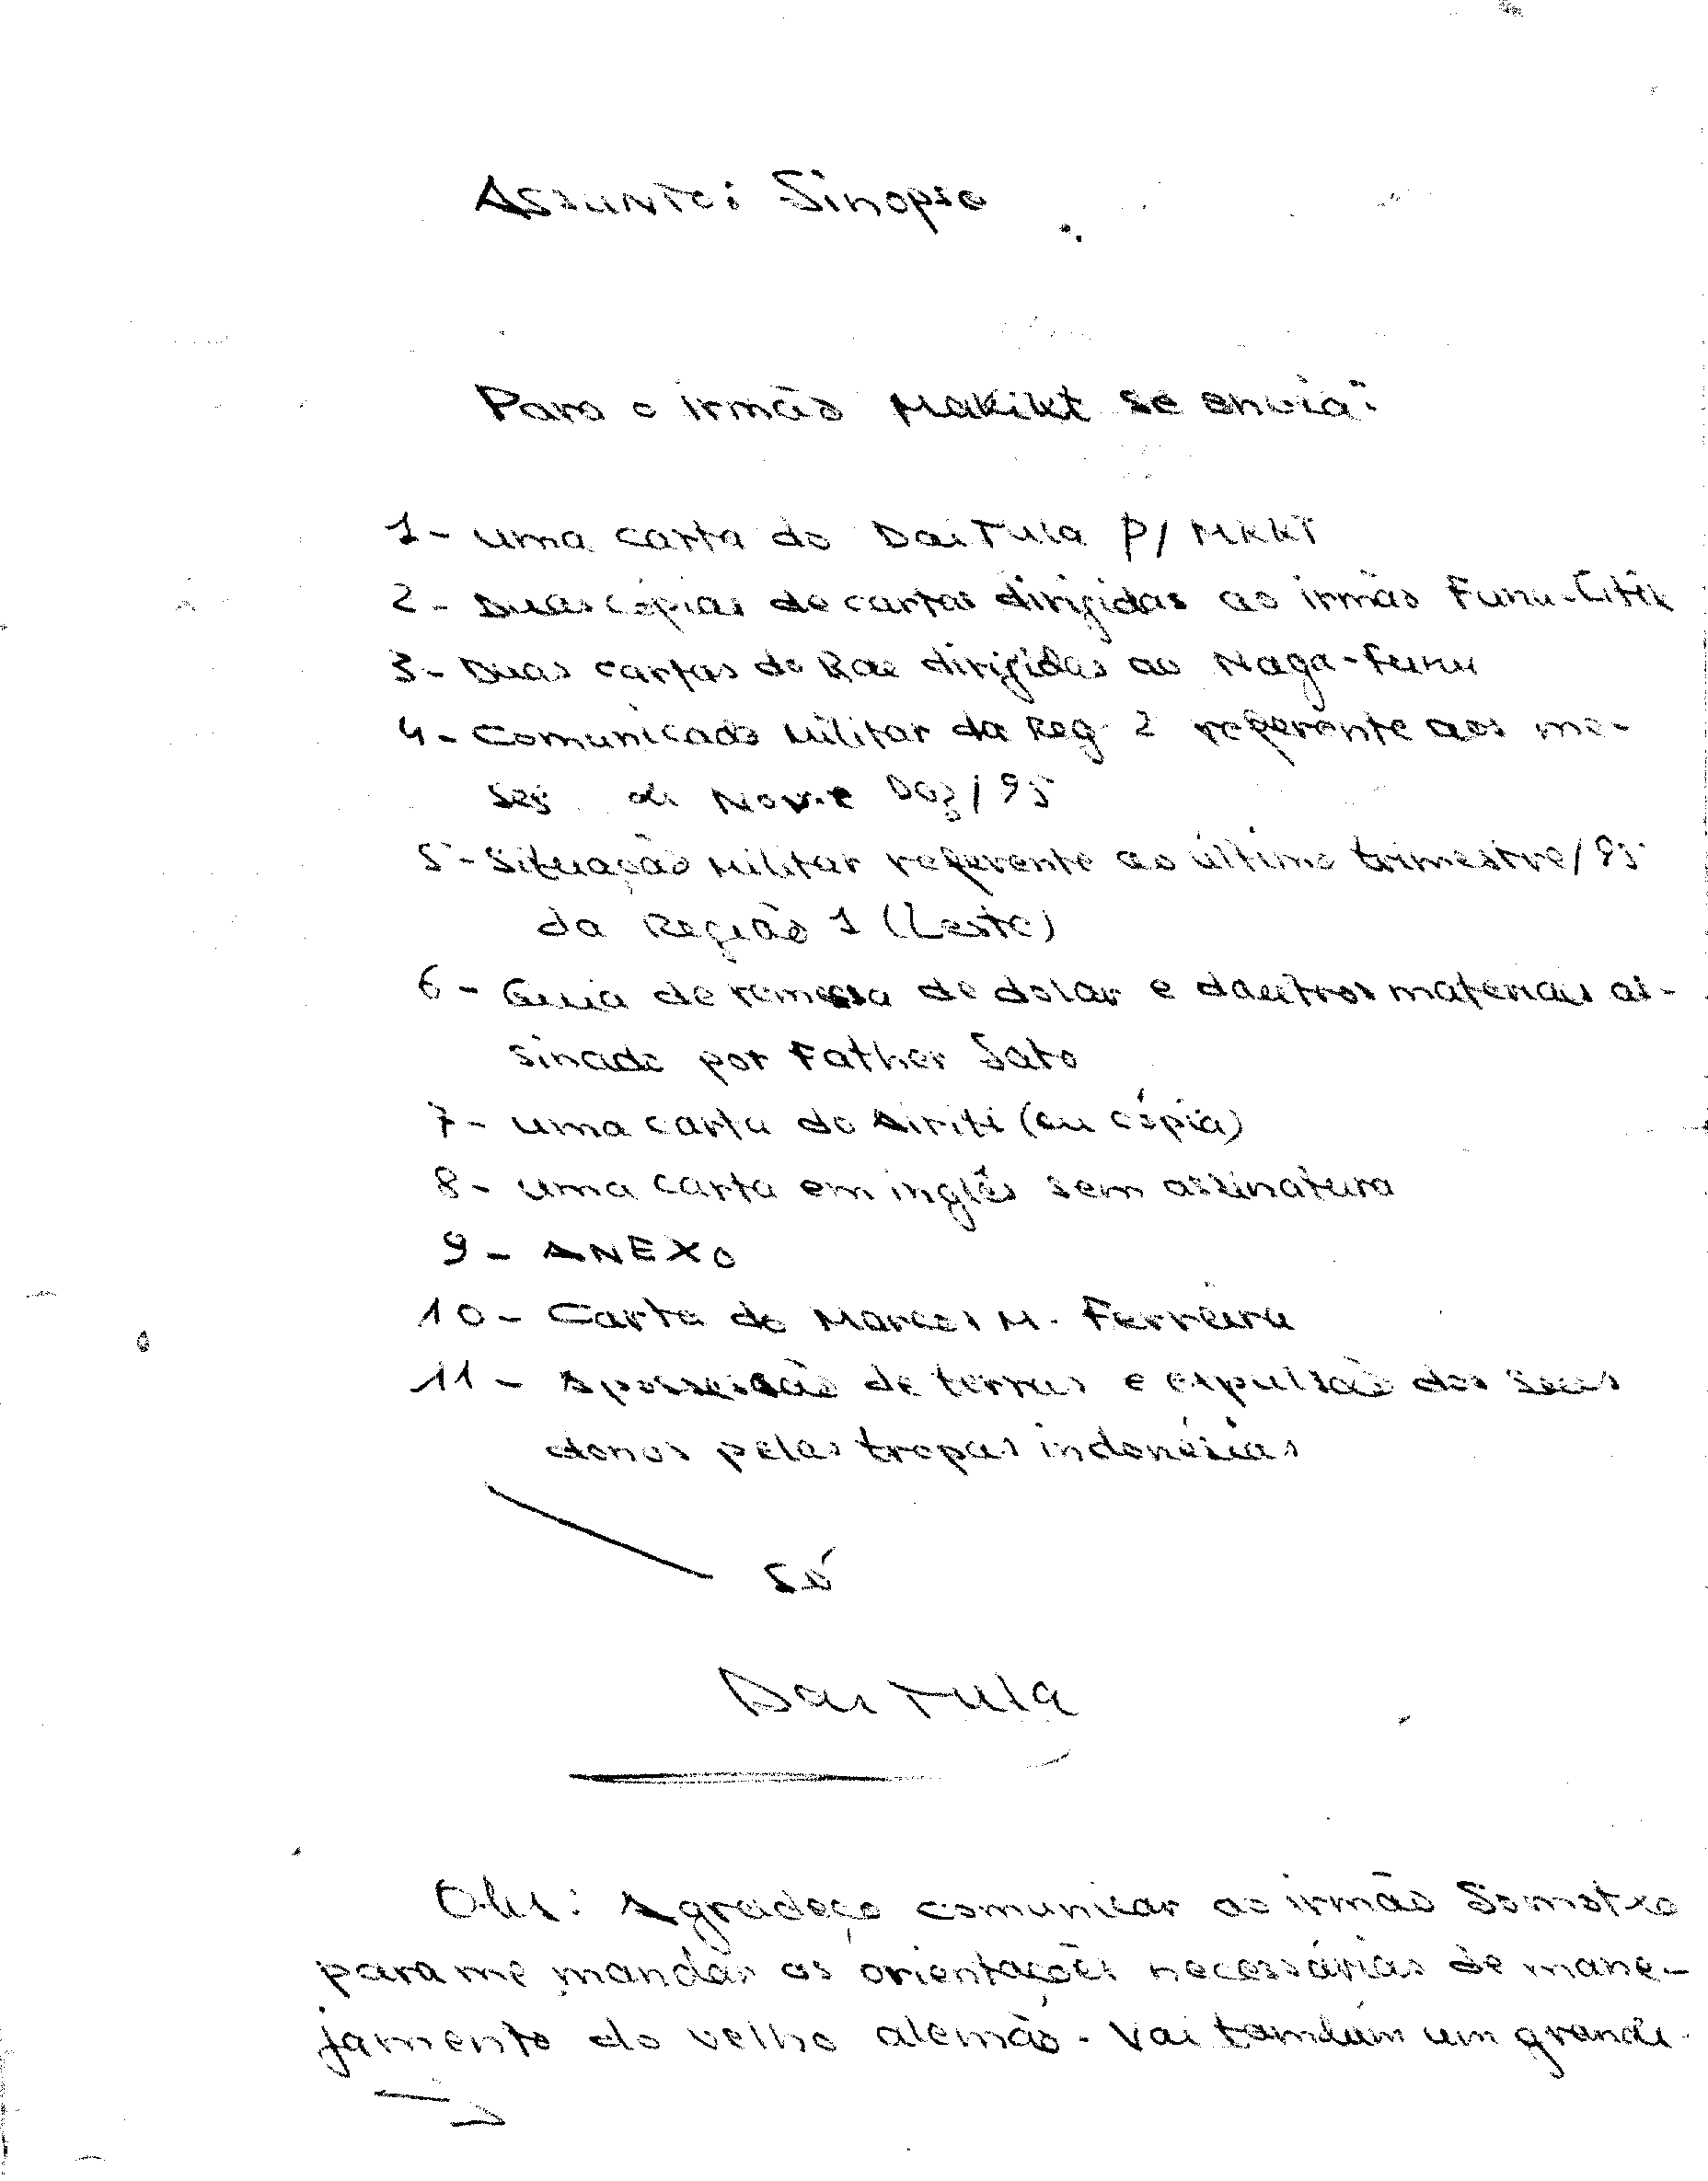 Assunto: Sinopse
Para o irmão Makikit se envia:
1 - Uma carta do Dai Tula p/ MKKT
2 - Duas cópias de cartas dirigidas ao irmão Funu-Citik
3 - Duas cartas do Rae dirigidas ao Naga-Funu
4 - Comunicado Militar da Reg 2 referente aos me-
ses de Nov. e Dez/95
5 - Situação Militar referente ao último trimestre/95
da Região 1 (Leste)
6 - Guia de remessa de dolar e doutros materiais as-
sinado por Father Sato
7 - Uma carta do Airiti (ou cópia)
8 - Uma carta em inglês sem assinatura
9 - ANEXO
10 - Carta de Marcos M. Ferreira
11 - Apossessão de terras e expulsão dos seus
donos pelas tropas indonésias
Só
Dai Tula
Obs: Agradeço comunicar ao irmão Somotxo
para me mandar as orientações necessárias de mane-
jamento do velho alemão. Vai também um grande